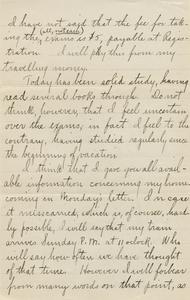 I have not said that the fee for tak-
ing these exams is $5, payable at Regis-
tration. I will pay this from my
travelling money.
Today has been solid study, having
read several books through. Do not
think, however, that I feel uncertain
over the exams, in fact I feel to the
contrary, having studied regularly since
the beginning of vacation.
I think that I gave you all avail-
able information concerning my home
coming in Monday's letter. In case
it miscarried, which is, of course, hard-
ly possible, I will say that my train
arrives Sunday P.M. at 11 o'clock. Who
will say how often we have thought
of that time. However I will forbear
from many words on that point, as